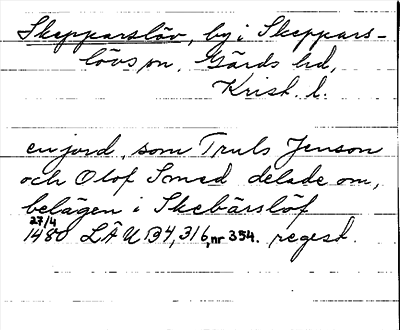 Skepparslöv, by i Skeppars-
lövs sn. Gärds hd,
Krist. l.
en jord, som Truls Jenson
och Olof Smed delade om,
belägen i Skebärslöf
27/4
1480 LÄU B4, 316, nr 354. regest.